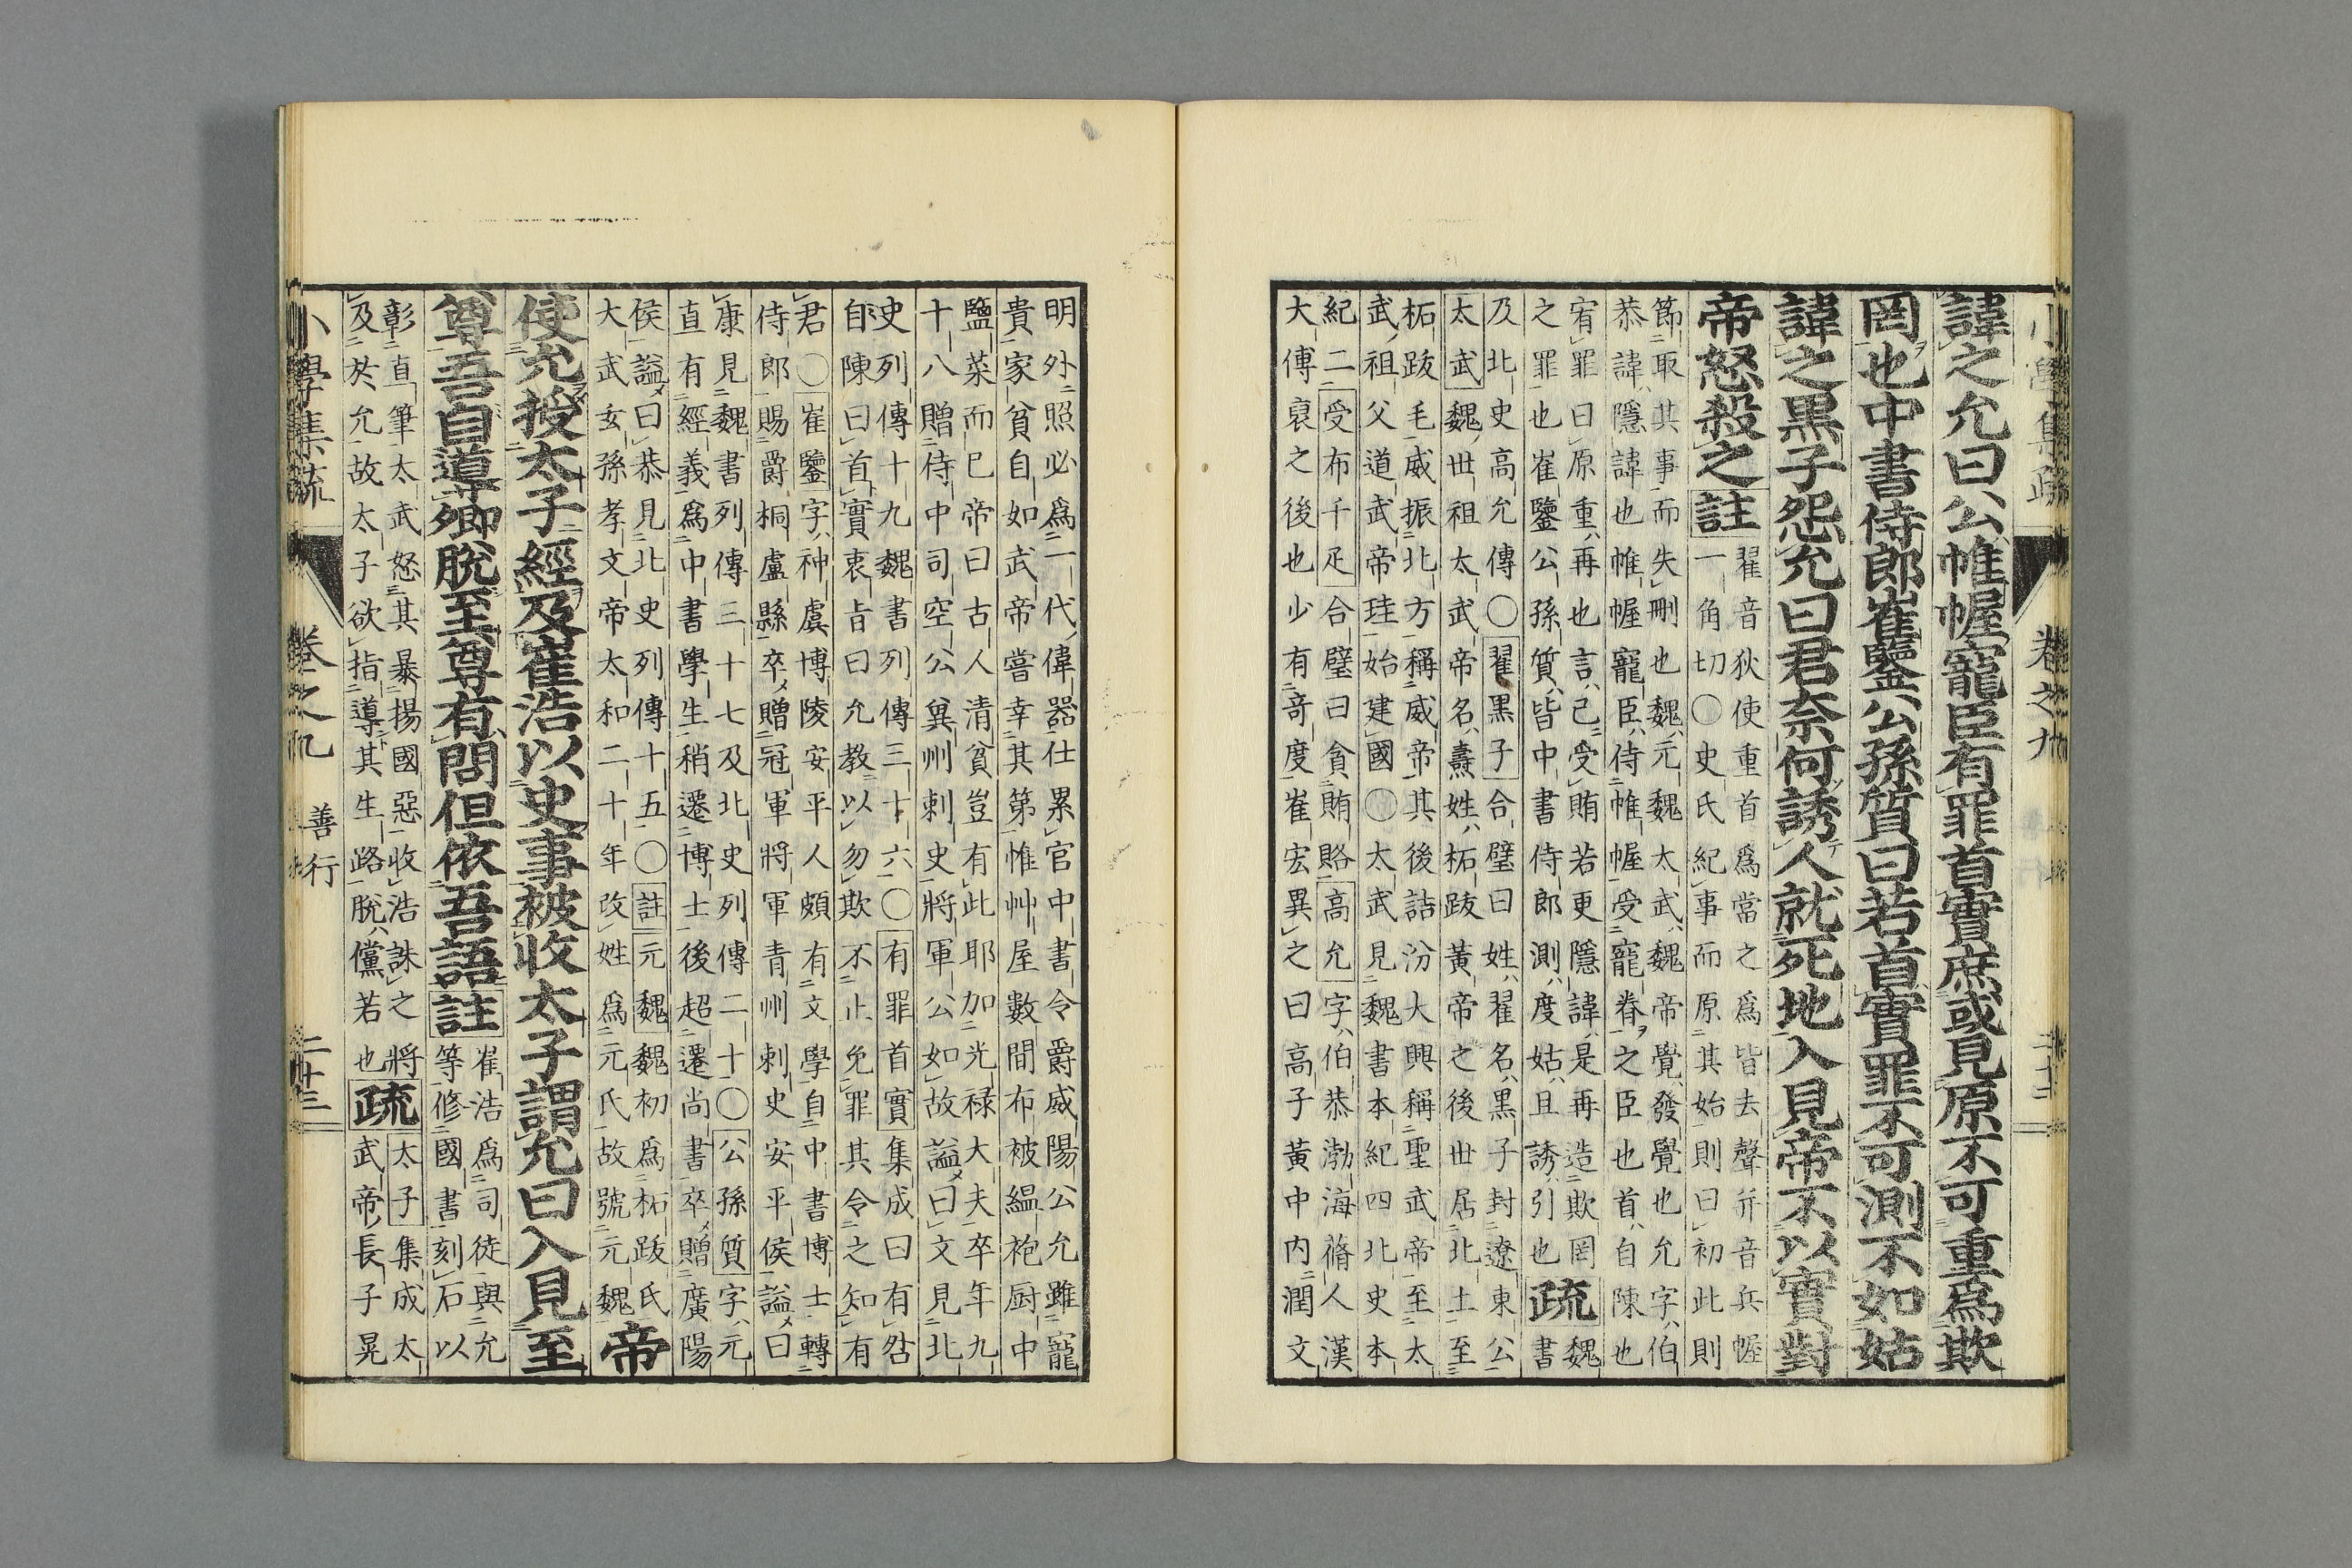 諱之允曰公帷幄寵臣有罪首實庶或見原不可重爲欺
罔也中書侍郎崔鑒公孫質曰若首實罪不可測不如姑
諱之黑子怨允曰君奈何誘人就死地入見帝不以實對
帝怒殺之註
翟音狄使重首爲當之爲皆去聲斤音兵幄
一角切〇史氏紀事而原其始則曰初此則
節取其事而失刪也魏元魏太武魏帝覺發覺也允字伯
恭諱隱諱也帷幄寵臣侍帷幄受寵眷之臣也首自陳也
宥罪曰原重再也言已受賄若更隱諱是再造欺罔
之罪也崔鑒公孫質皆中書侍郎測度姑且誘引也
疏
魏
書
及北史高允傳〇翟黑子合璧曰姓翟名黑子封遼東公
太武魏世祖太武帝名燾姓柘跋黃帝之後世居北土至
柘跋毛威振北方稱威帝其後詰汾大興稱聖武帝至太
武祖父道武帝珪始建國〇太武見魏書本紀四北史本
紀二受布千疋合璧曰貪賄賂高允字伯恭渤海蓨人漢
大傅裒之後也少有奇度崔宏異之曰高子黃中內潤文
小學集疏
卷之九
二十三
明外照必爲一代偉器仕累官中書令爵咸陽公允雖寵
貴家貧自如武帝嘗幸其第惟艸屋數間布被緼袍厨中
鹽菜而已帝曰古人清貧豈有此耶加光祿大夫卒年九
十八贈侍中司空公兾州刺史將軍公如故謚曰文見北
史列傳十九魏書列傳三十六〇有罪首實集成曰有咎
自陳曰首實衷旨曰允教以勿欺不止免罪其令之知有
君〇崔鑒字神虞博陵安平人頗有文學自中書博士轉
侍郎賜爵桐盧縣卒贈冠軍將軍青州刺史安平侯謚曰
康見魏書列傳三十七及北史列傳二十〇公孫質字元
直有經義爲中書學生稍遷博士後超遷尚書卒贈廣陽
侯謚曰恭見北史列傳十五〇註元魏魏初爲柘跋氏
大武玄孫孝文帝太和二十年改姓爲元氏故號元魏
帝
使允授太子經及崔浩以史事被收太子謂允曰入見至
尊吾自導卿脫至尊有問但依吾語註
崔浩爲司徒與允
等修國書刻石以
彰直筆太武怒其暴揚國惡收浩誅之將
及於允故太子欲指導其生路脫儻若也
疏
太子集成太
武帝長子晃
小學集疏
卷之九
善行
二十三